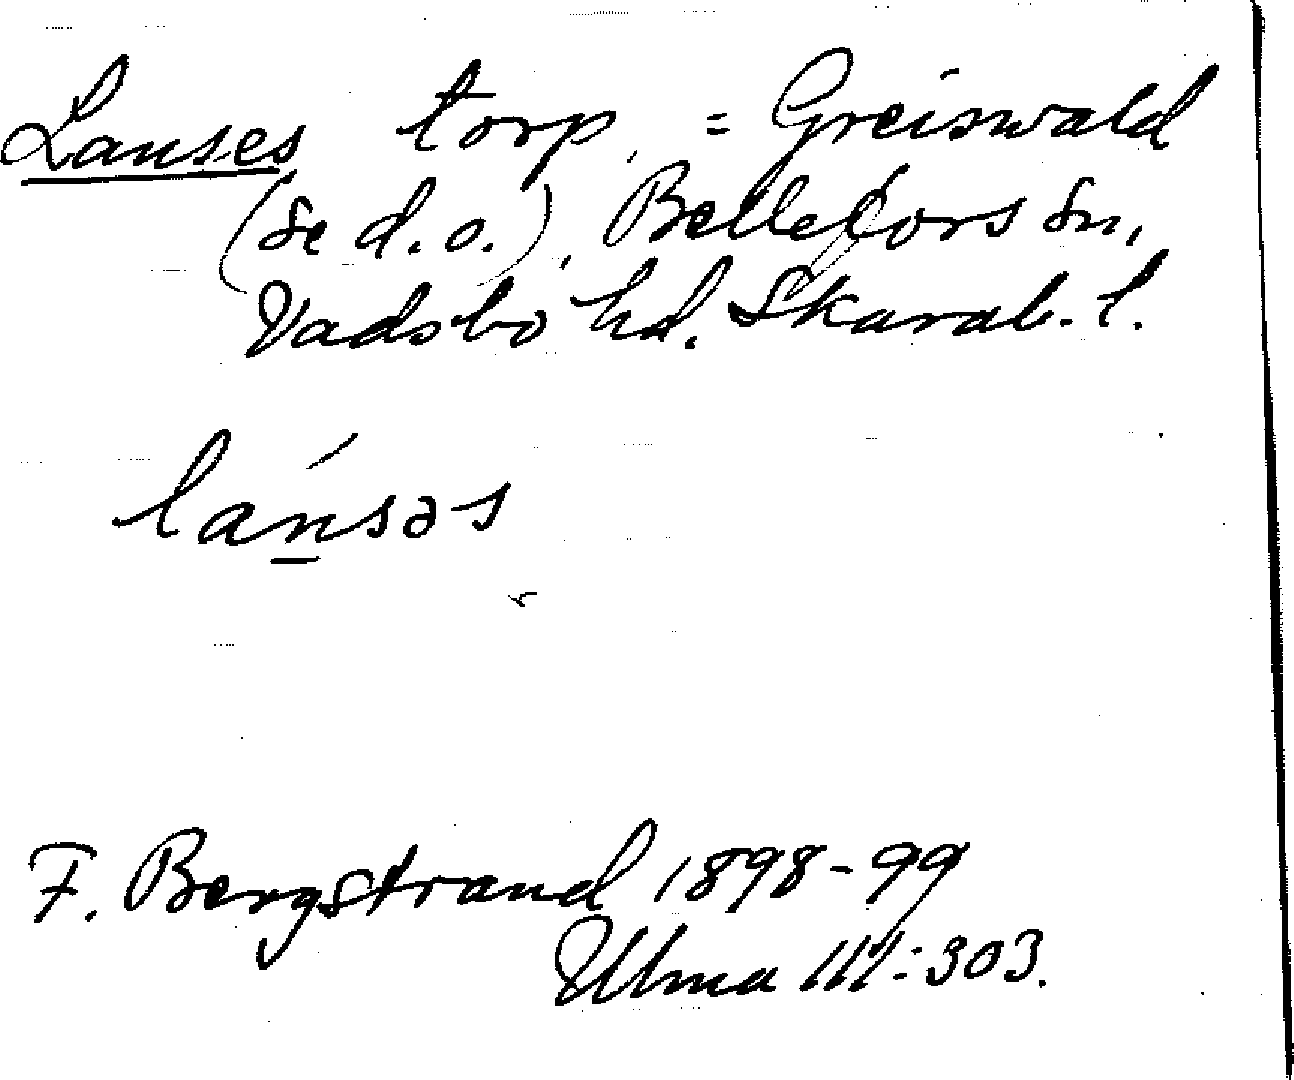 Lanses torp, = Greiswald
(se d.o.), Bellefors sn,
Vadsbo hd. Skarab. l.
lánsəs
F. Bergstrand 1898-99
Ulma 111:303.